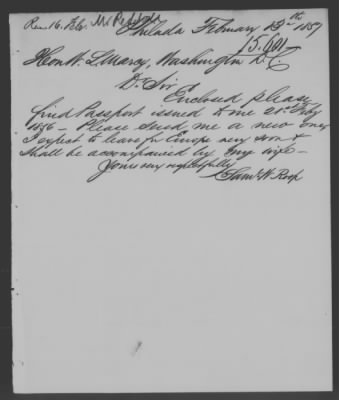 Rec. 16. Feb. Mr
Philada February 13th 1857
15.601
Hon W. L. Marcy, Washington D.C.
Dr. Sir
Enclosed please
find Passport issued to me 21st Feby
1856 - Please send me a new one,
I expect to leave for Europe very soon &
shall be accompanied by my wife -
Yours very respectfully
Saml W Roop